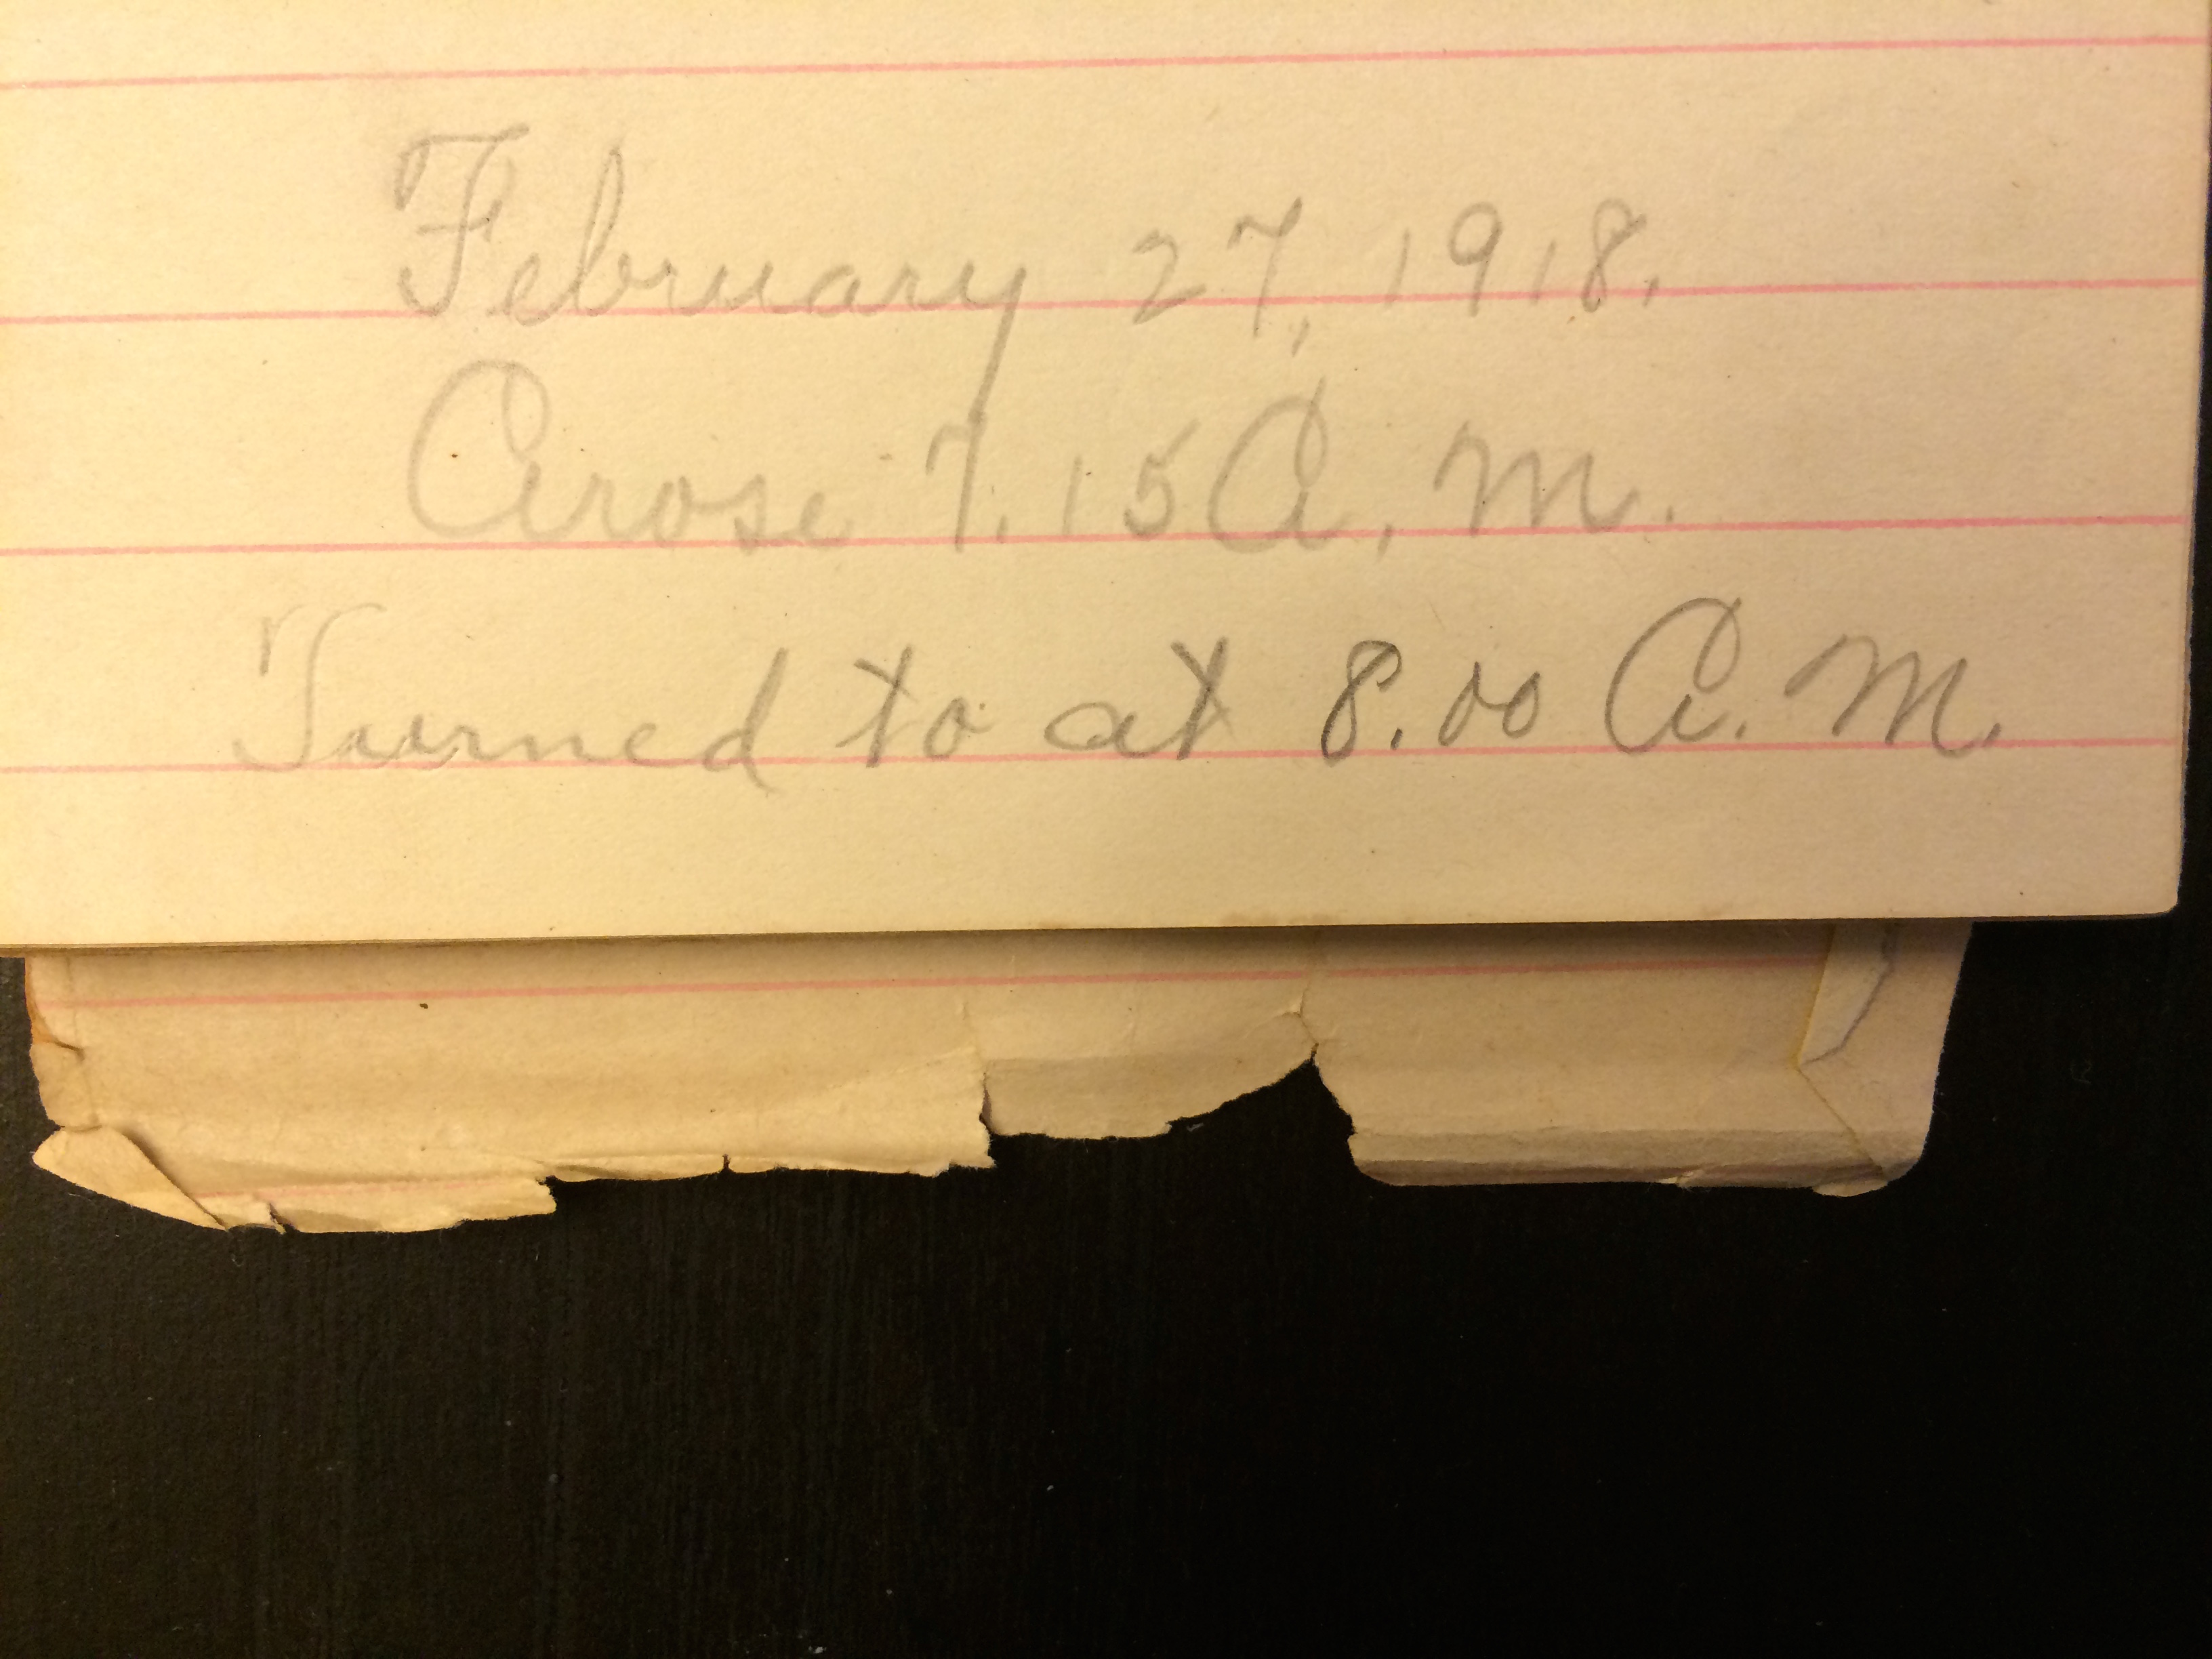 February 27, 1918.
Arose 7.15 A.M.
Turned to at 8.00 A.M.